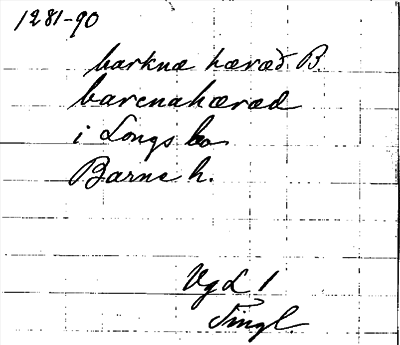 1281-90
barknæ hæræd. B.
barcnahæræd
i Longs bo
Barne h.
VgL 1
Tingl.